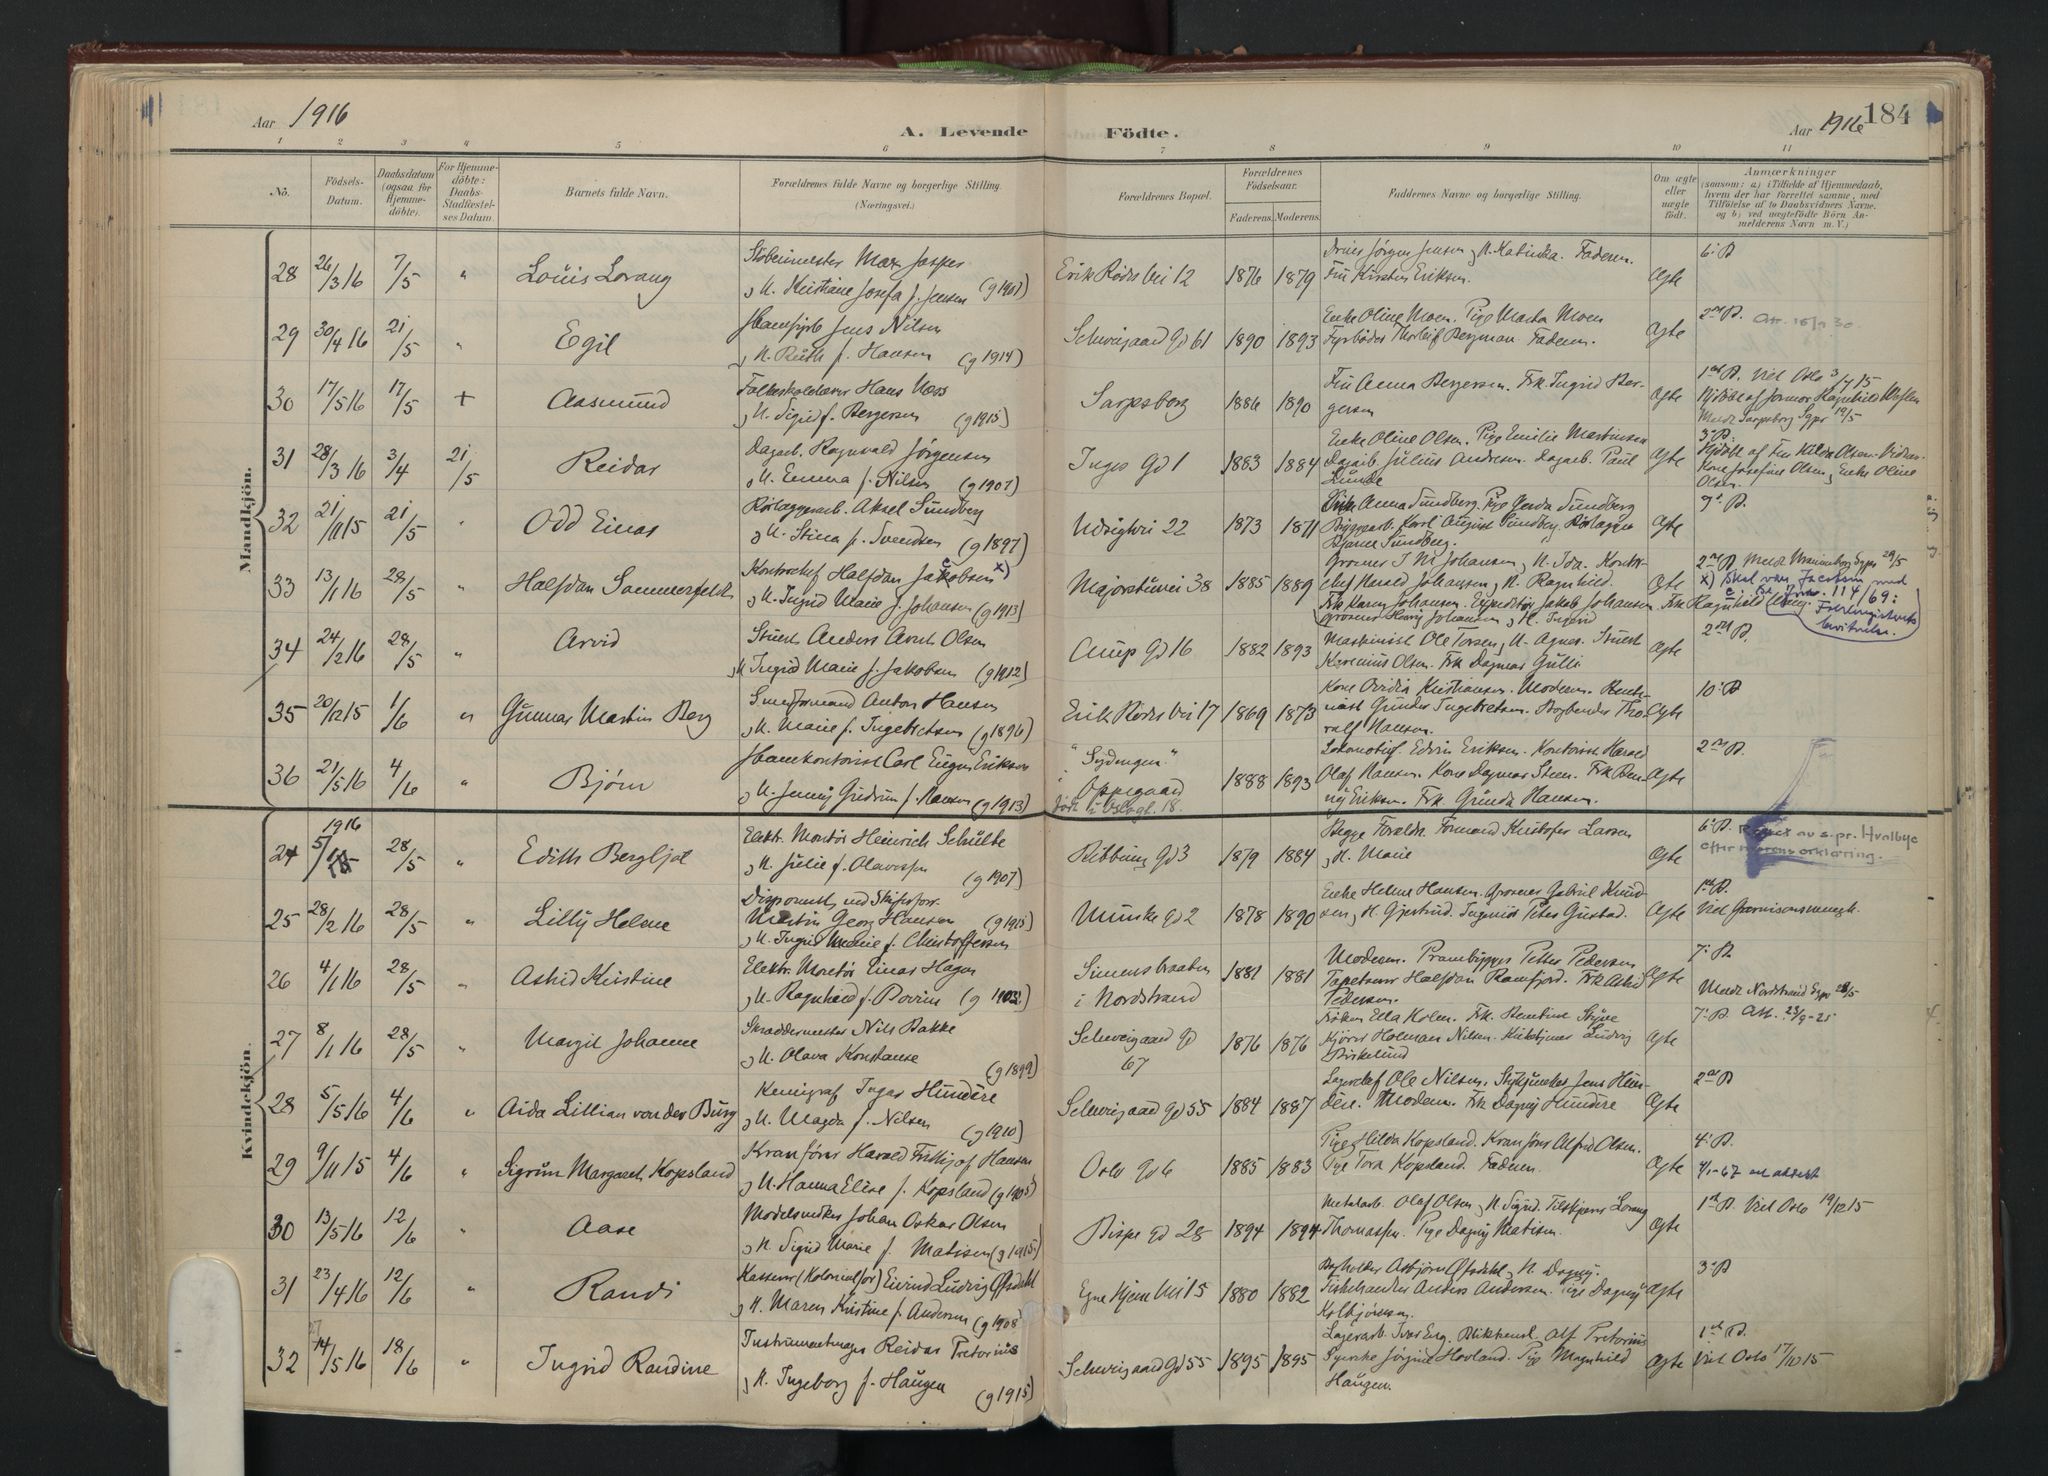 Aar 1916
A. Levende Födte.
Aar 1916
184
1 2 3 4 5 6 7 8 9 10 11
No.
Födsels-
Datum.
Daabsdatum
(ogsaa for
Hjemme-
döbte).
For Hjemme-
döbte:
Daabs-
Stadfæstel-
ses Datum.
Barnets fulde Navn.
Forældrenes fulde Navne og borgerlige Stilling.
(Næringsvei.)
Forældrenes Bopæl.
Forældrenes
Födselsaar.
Faderens. Moderens.
Faddernes Navne og borgerlige Stilling.
Om ægte
eller
uægte
födt.
Anmærkninger
(saasom: a) i Tilfælde af Hjemmedaab,
hvem der har forrettet samme, med
Tilföielse af to Daabsvidners Navne,
og b) ved uægtefödte Börn An-
melderens Navn m. V.)
Mandkjön.
28 26/3 16 7/5 " Louis Lorang
Støbermester Max Jasper
og H. Kristiane Josefa f. Jensen (g 1901)
Erik Rødes Vei 12 1876 1879
Jørgen Jensen og H. Katinka. Faderen.
Fru Kirsten Eriksen.
Ægte 6' B
29 30/4 16 21/5 " Egil
Jens Nilsen
og H. Ruth f. Hansen (g 1914)
Schweigaard Gd 61 1890 1893
Enke Oline Moen. Pige Marta Moen
Fyrbøder Thorleif Bergman Faderen.
Ægte 2en B.
30 17/5 16 17/5 + Aasmund
Folkeskolelærer Hans Næss
og H. Sigrid f. Bergersen (g 1915)
Sarpsborg 1886 1890
Fru Anna Bergersen. Frk. Ingrid Ber-
gersen
Ægte 1ste B. Viet Oslo 3/7 15
Hjdøbt af Jormor Ragnhild
Meldt Sarpsborg Sgpr 19/5
31 28/3 16 3/4 21/5 Reidar
Dagarb. Ragnvald Jørgensen
og H. Emma f. Nilsen (g 1907)
Inges Gd 1 1883 1884
Enke Oline Olsen. Pige Emilie Martinsen
Dagarb. Julius Andresen. Dagarb. Paul
Lunde
Ægte 3' B.
Hjdøbt af Fru Hilda Olsen. Vidner
Kone Josefine Olsen og Enke Oline
Olsen.
32 21/11 15 21/5 " Odd Einar
Rørlæggerarb. Aksel Sundberg
og H. Stina f. Svendsen (g 1897)
Udsigtvei 22 1873 1871
Anna Sundberg. Pige Gerda Sundberg
Byggearb. Karl August Sundberg. Rørlægger
Bjarne Sundberg.
Ægte 9' B.
33 13/1 16 28/5 " Halfdan Sommerfeldt
Kontorchef Halfdan Jakobsen x)
og H. Ingrid Marie f. Johansen (g 1913)
Majorstuvei 38 1885 1889
Grosserer J M Johansen og H. Ida. Kontor-
chef Harald Johansen og H. Ragnhild.
Frk Karen Johansen. Expeditør Jakob Johansen Frk Ragnhild
grosserer Henry Johansen og H. Ingrid
Ægte 2en B Meldt Uranienborg Sgpr 29/5
x) Skal være Jacobsen med
c, Jnr. 114/69:
Folkeregisterets
bevitnelse.
34 24/2 16 28/5 " Arvid
Stuert Anders Arnt Olsen
og H Ingrid Marie f. Jakobsen (g 1912)
Arup Gd 16 1882 1893
Maskinist Ole Torsen og H. Agnes. Stuert
Karenius Olsen. Frk Dagmar Gulli
Ægte 2en B.
35 20/12 15 1/6 " Gunnar Martin Berg
Smedformand Anton Hansen
og H. Marie f. Ingebretsen (g 1896)
Erik Rødes Vei 17 1869 1873
Kone Ovidia Kristiansen. Moderen.
Gunder Ingebretsen. Bogbinder Tho-
ralf Hansen.
Ægte 10' B
36 21/5 16 4/6 " Bjørn
Banekontorist Carl Eugen Eriksen
og H. Jenny Gudrun f. Hansen (g 1913)
"Sydengen"
Oppegaard
1888 1893
Lokomotivf. Edvin Eriksen. Kontorist Harald
Olaf Hansen. Kone Dagmar Steen. Frk
Eriksen. Frk Gunda Hansen.
Ægte 2en B.
Kvindekjön.
24 1916 5/1 28/5 " Edith Bergljot
Elektr. Montør Heinrich Schulte
og H. Julie f. Olavessen (g 1907)
Ribbung Gd 3 1879 1884
Begge Forældre. Formand Kristofer Larsen
og H. Marie
Ægte 6' B. Rettet av s.pr. Hvalbye
efter morens erklæring.
25 28/2 16 28/5 " Lilly Helene
Disponent
Martin Georg Hansen (g 1915)
og H. Ingrid Marie f. Christoffersen
Munke Gd 2 1878 1890
Enke Helene Hansen. Grosserer Gabriel Knud-
sen og H. Gjertrud. Ingeniør Peter Gustad.
Ægte 1ste B.
Viet Garnisonsmenigh.
26 4/1 16 28/5 " Astrid Kristine
Elektr. Montør Einar Hagen
og H. Ragnhild f. Bovim
Simensbraaten
i Nordstrand
1881 1881
Moderen. Petter Pedersen
Tapetserer Halfdan Ramfjord. Frk Astrid
Pedersen.
Ægte 7' B.
Meldt Nordstrand Sgpr 28/5
27 8/1 16 28/5 " Margit Johanne
Skræddermester Nils Bakke
og H. Olava Konstanse (g 1899)
Schweigaard Gd
67
1876 1876
Frøken Ella Holm. Frk.
Kjører Holman Nilsen. Ludvig
Birkelund
Ægte 7' B. Att. 23/9-25
28 5/5 16 4/6 " Aida Lillian van der Burg
Kemigraf Ingar Hundere
og H. Magda f. Nilsen (g 1910)
Schweigaard Gd 55 1884 1887
Lagerchef Ole Nilsen. Jens Hun-
dere. Moderen. Frk Dagny Hundere
Ægte 2en B
29 9/11 15 4/6 " Sigrun Margareth Kopsland
Kranfører Harald Fritjof Hansen
og H. Hanna Elise f. Kopsland (g 1905)
Oslo Gd 6 1885 1883
Pige Hilda Kopsland. Kranfører Alfred Olsen.
Pige Tora Kopsland. Faderen.
Ægte 4' B.
30 13/5 16 12/6 " Aase
Modelsnedker Johan Oskar Olsen
og H. Sigrid Marie f. Matisen (g 1915)
Bispe Gd 28 1894 1894
Metalarb. Olaf Olsen og H. Sigrid. Lorang
Thomassen. Pige Dagny Matisen.
Ægte 1ste B. Viet Oslo 19/12 15
31 23/4 16 12/6 " Randi
Kasserer (Kolonialfor) Eivind Ludvig Øfsdahl
og H. Maren Kristine f. Andersen (g 1908)
Egne Hjem Vei 5 1880 1882
Bogholder Asbjørn Øfsdahl og H. Dagny.
Fiskehandler Anders Andersen. Pige Dagny
Kolbjørnsen.
Ægte 3' B
32 14/5 16 18/6 " Ingrid Randine
Instrumentmager Reidar Pretorius
og H. Ingeborg f. Haugen (g 1915)
Schweigaard Gd 55 1895 1895
Lagerarb. Ivar Eng. Alf Pretorius
Syerske Jørgine Hovland. Pige Magnhild
Haugen.
Ægte 1ste B.
Viet Oslo 17/10 15